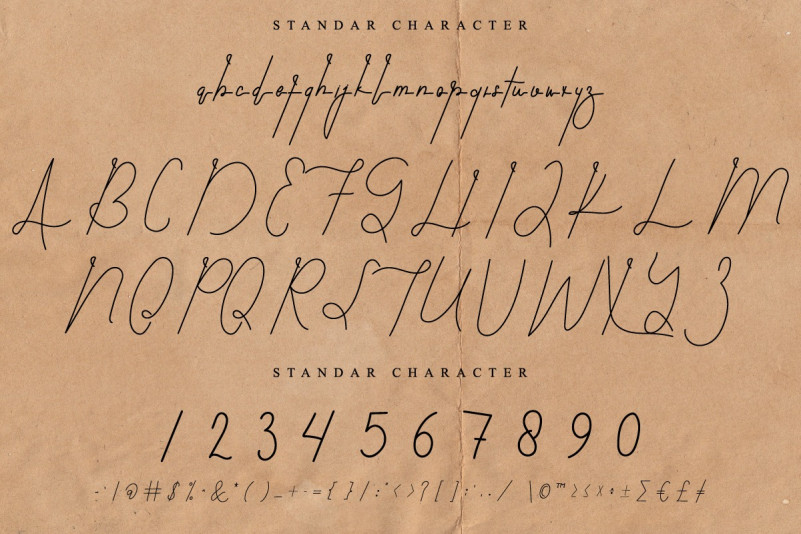 STANDAR CHARACTER
abcdefghijklmnopqrstuvwxyz
ABCDEFGHIJKLM
NOPQRSTUVWXYZ
STANDAR CHARACTER
1234567890